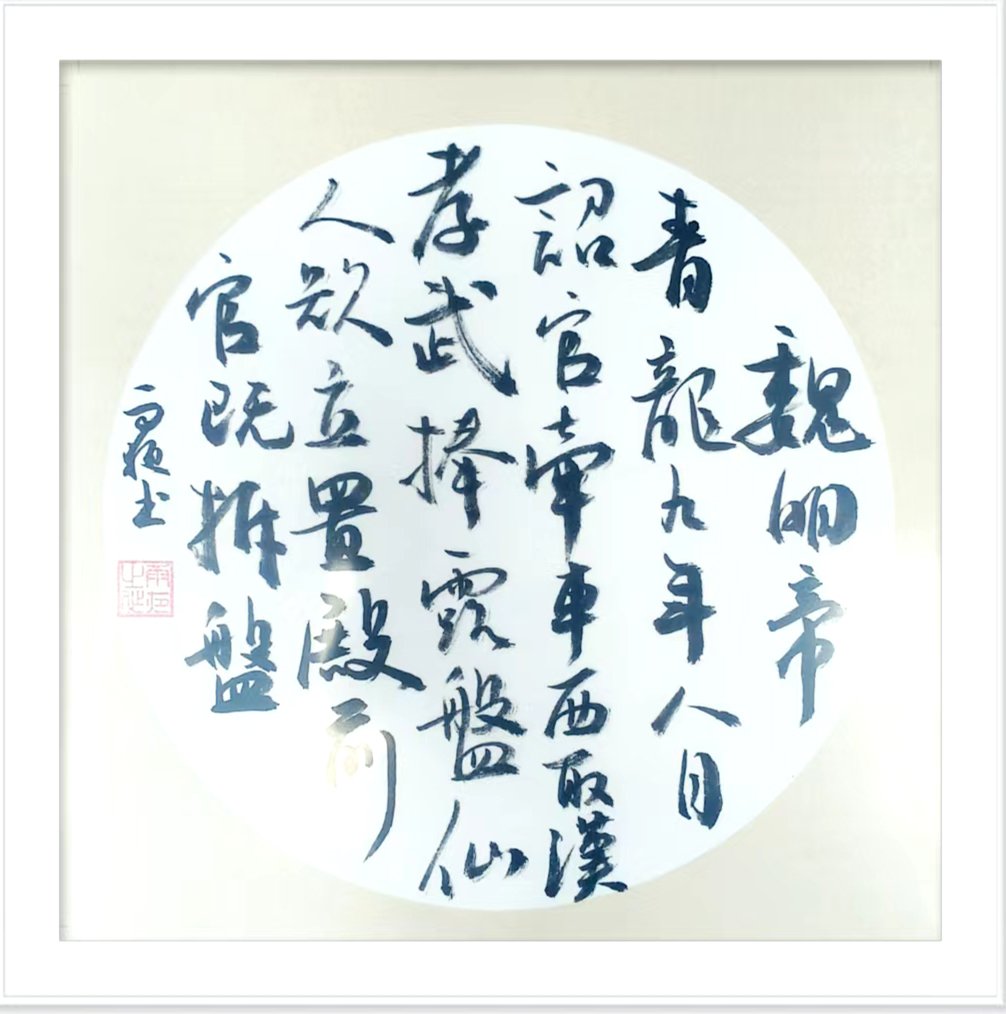 魏明帝
青龍九年人月
詔官牽車西取漢
孝武捧露盤仙
人欲立置殿前
官既拆盤
書